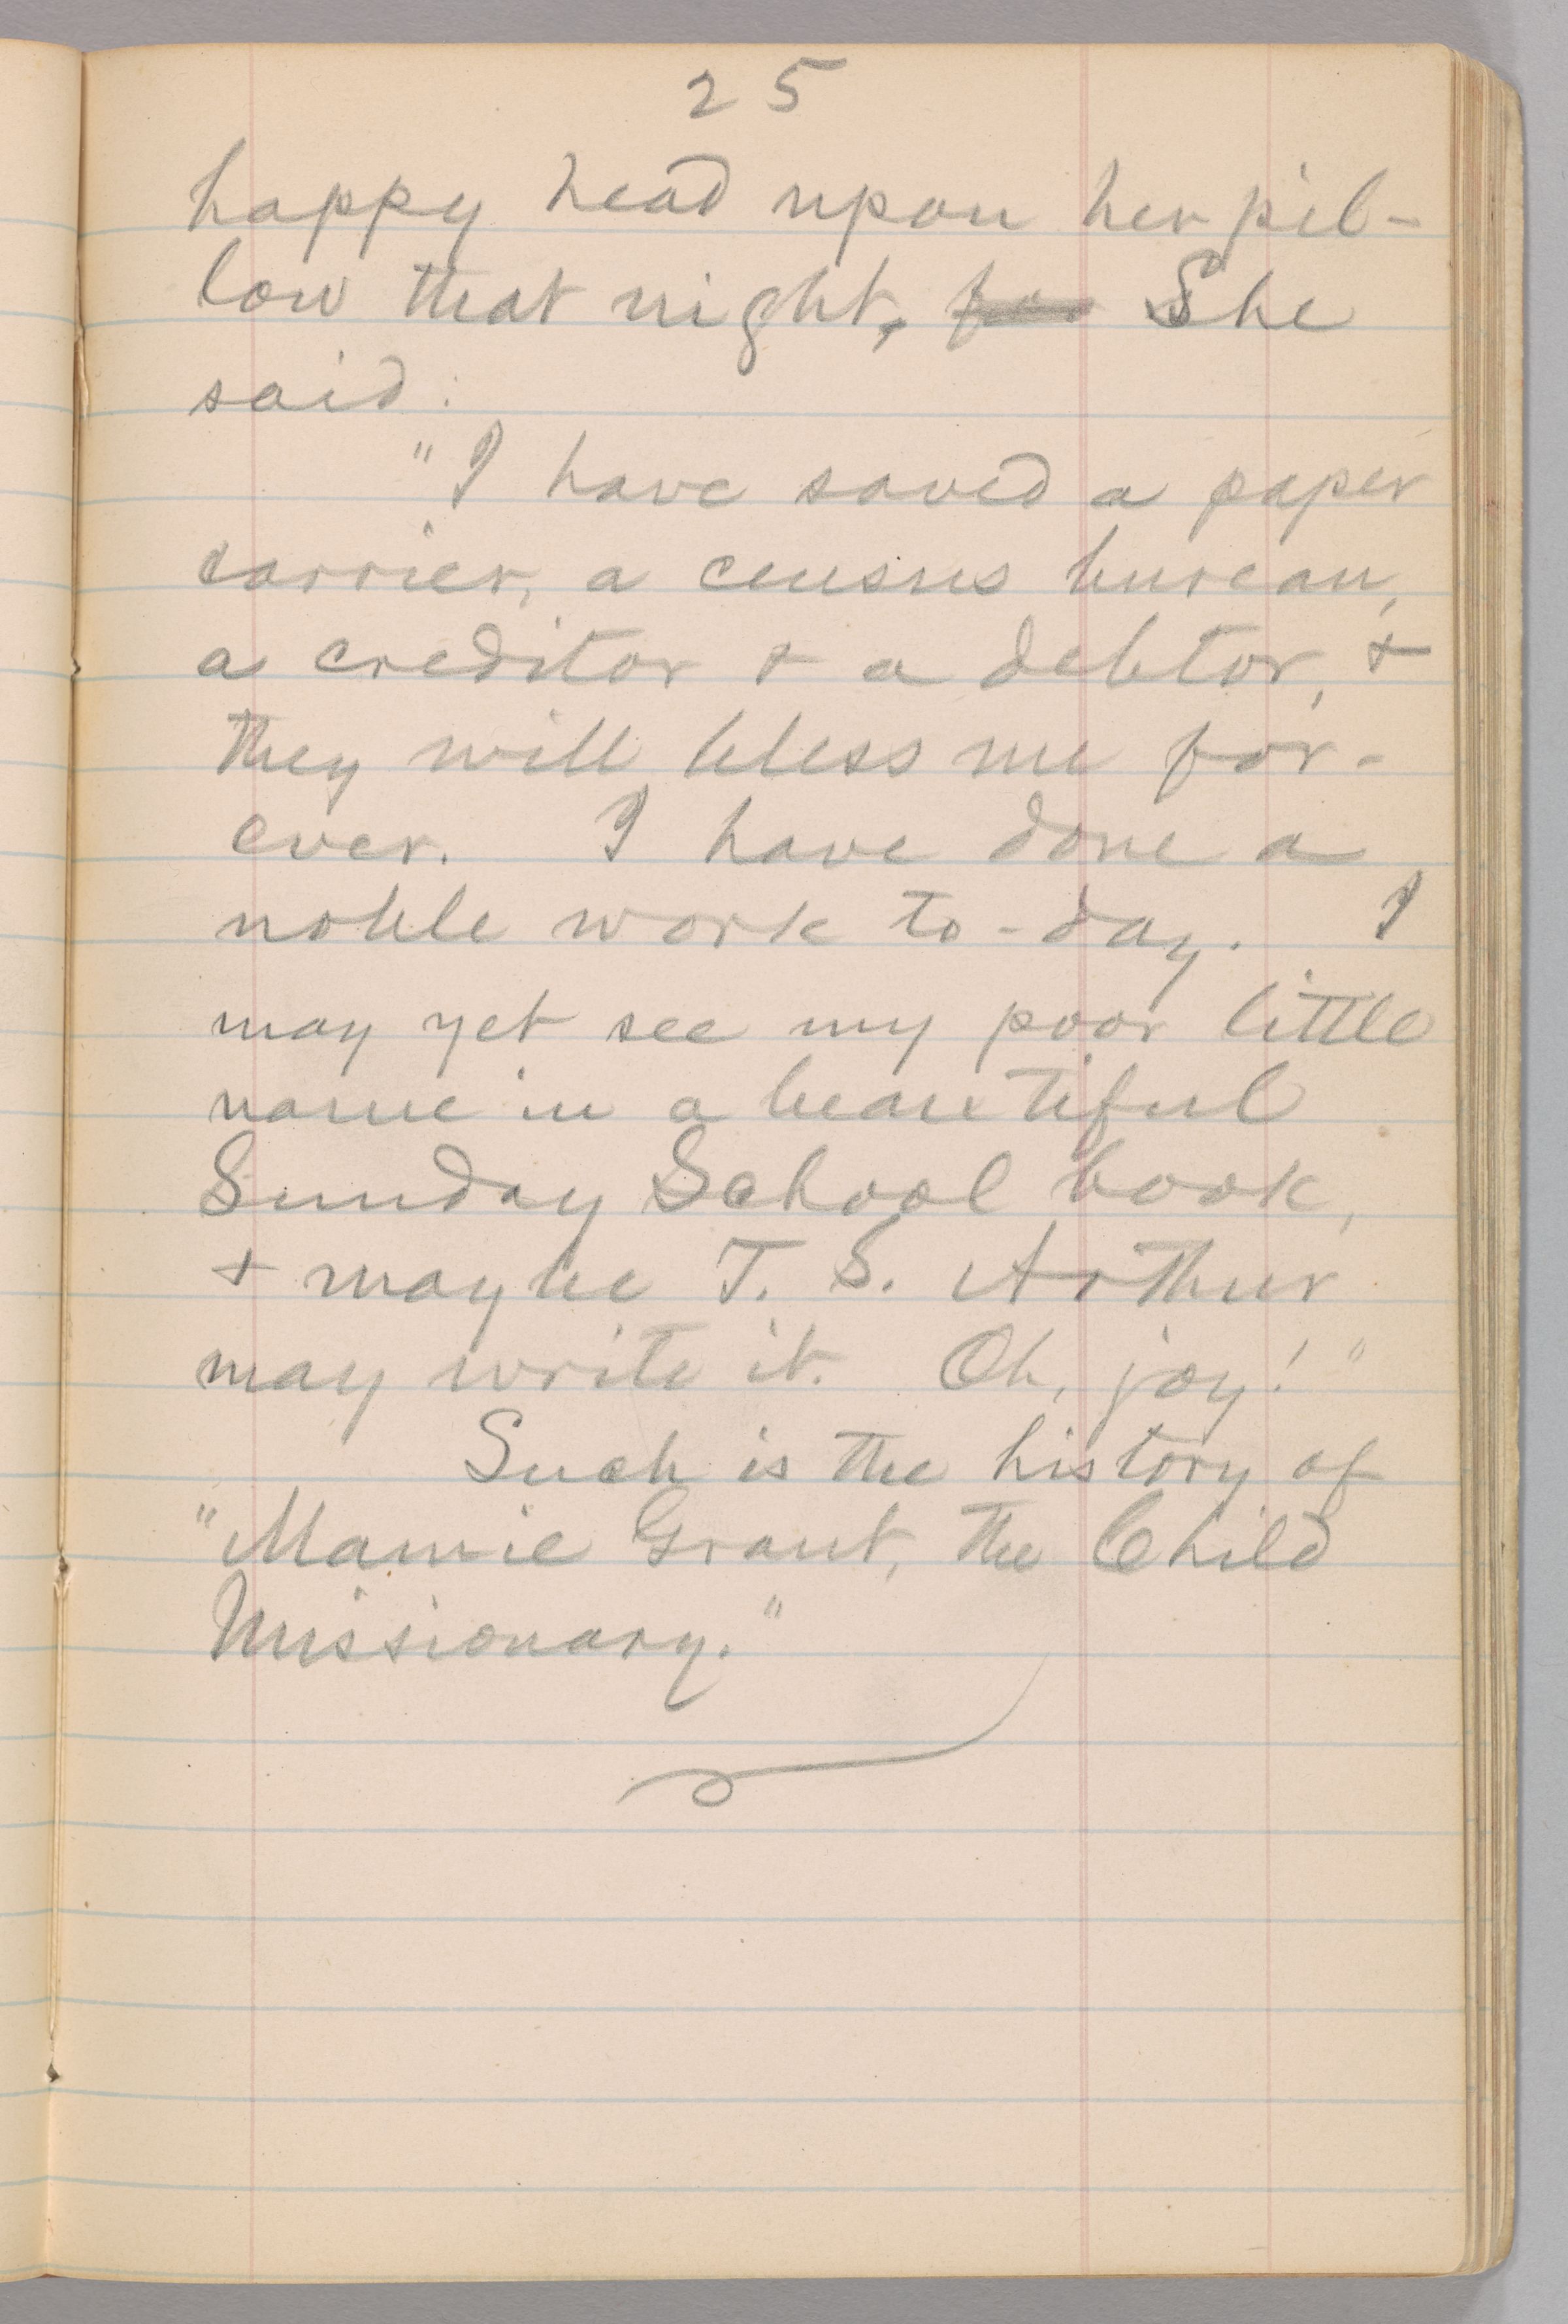 25
happy head upon her pil-
low that night, for She
said:
"I have saved a paper
carrier, a census bureau,
a creditor & a debtor, &
they will bless me for-
ever. I have done a
noble work to-day. I
may yet see my poor little
name in a beautiful
Sunday School book,
& maybe T. S. Arthur
may write it. Oh, joy!"
Such is the history of
"Mamie Grant, the Child
Missionary."